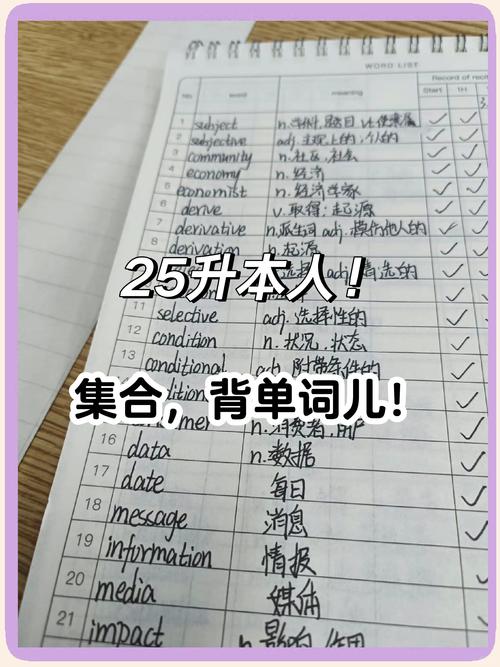 WORD LIST
No. word meaning Record of reci
Start 1H
1 subject n.学科,题目 vt.使隶属
2 subjective adj.主观上的,个人的
3 community n.社区,社会
4 economy n.经济
5 economist n.经济学家
6 derive v.取得;起源
7 derivative n.派生词 adj.模仿他人的
8 derivation n.起源
25升本人!
11 selective adj.选择性的
12 condition n.状况,状态
13 conditional adj.附带条件的
集合,背单词儿!
n.消费者,用户
16 data n.数据
17 date 每日
18 message 消息
19 information 情报
20 media 媒体
21 impact n.影响,作用